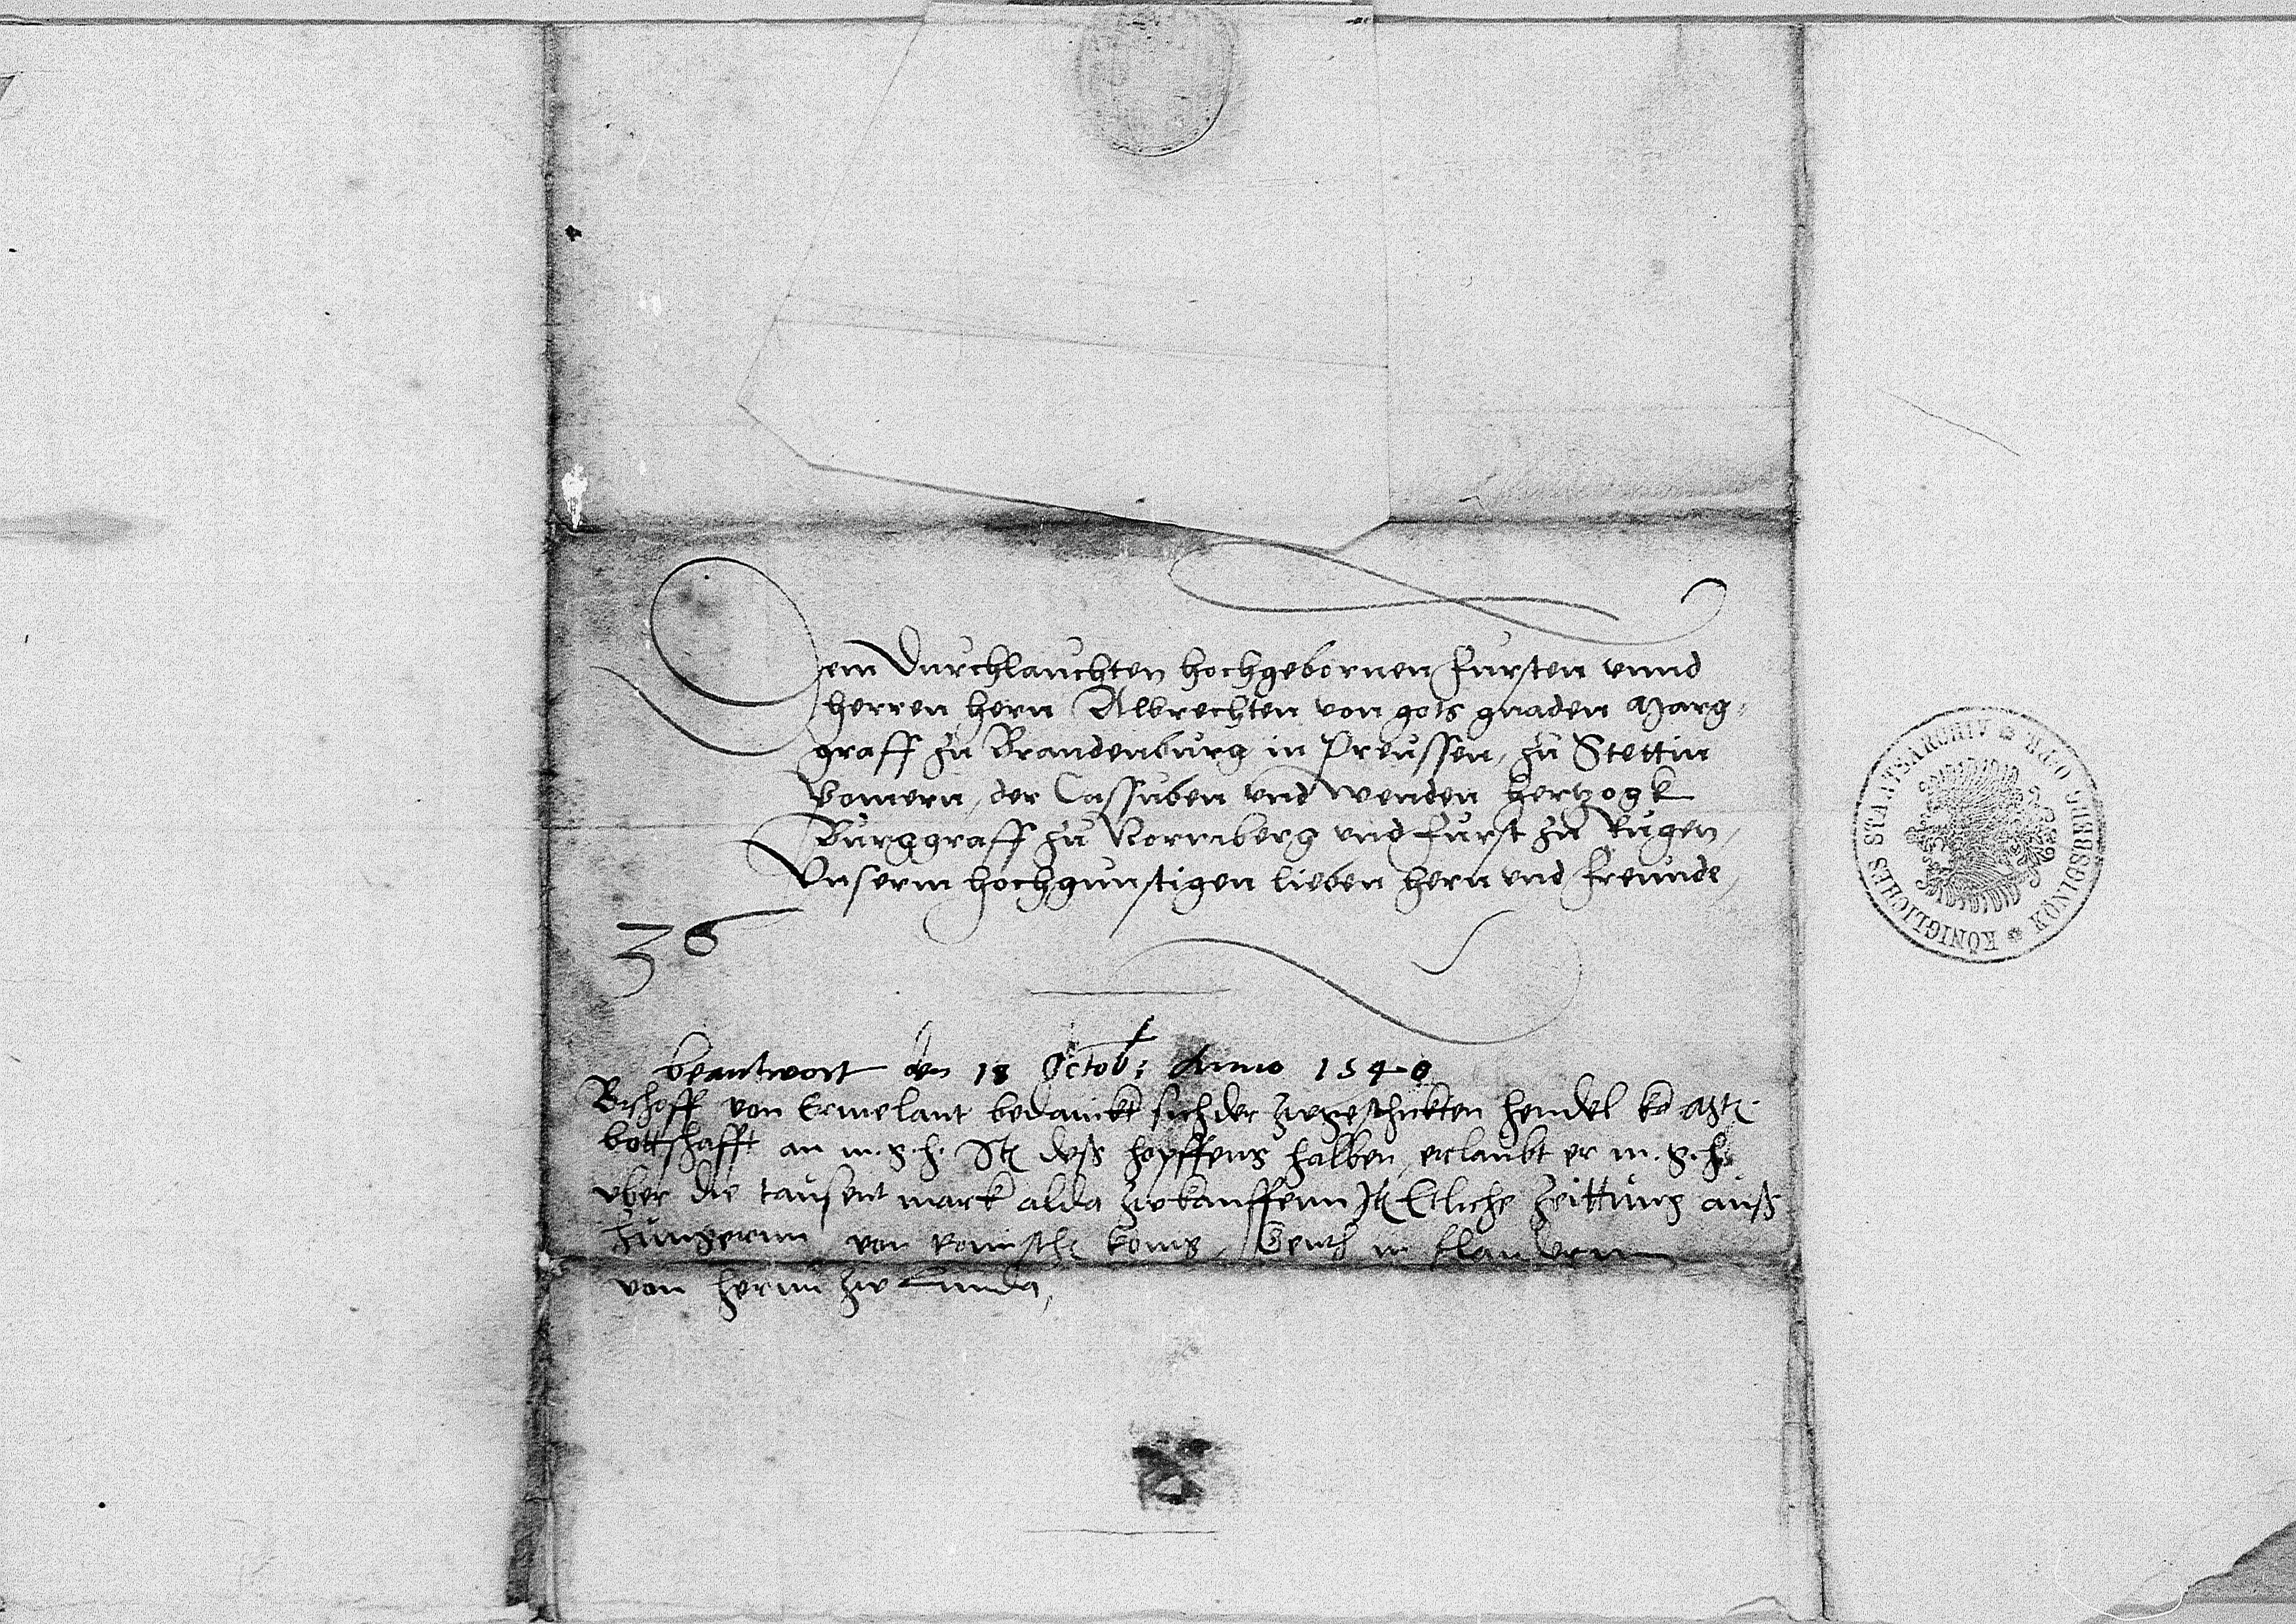 Dem Durchlauchten hochgebornen fursten vnnd
herren hern Albrechten von gots gnaden Marg-
graff zu Brandenburg in Preussen, zu Stettin
Pomern, der Cassuben vnd Wenden hertzogk
Burggraff zu Nornberg vnd furst zu Rugen,
Vnserm hochgunstigen lieben hern vnd freunde,
36
beantwort den 18 Octob: Anno 1540
Bischoff von Ermelant bedanckt sich der zugeschickten hendel ko Mt:
bottschafft an m. g. h. Itē deß hopffens halben, erlaubt er m. g. h.
vber die tausent mark alda zw kauffenn Itē Etliche zeittung auß
hungernn von romisch konig, Genth in flandern
von hernn zw Lunda,
KÖNIGLICHES STAATSARCHIV KÖNIGSBERG O/PR.